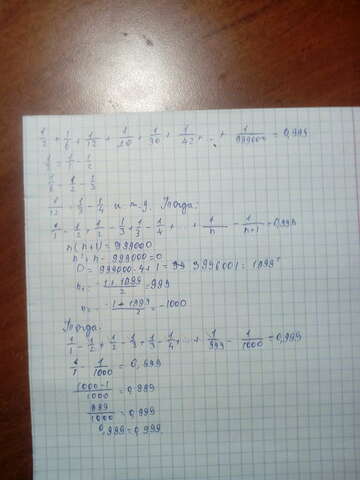 1/2 + 1/6 + 1/12 + 1/20 + 1/30 + 1/42 + ... + 1/999000 = 0,999
1/2 = 1/1 - 1/2
1/6 = 1/2 - 1/3
1/12 = 1/3 - 1/4 и т.д. Тогда:
1/1 - 1/2 + 1/2 - 1/3 + 1/3 - 1/4 + ... + 1/n - 1/(n+1) = 0,999
n(n+1) = 999000
n² + n - 999000 = 0
D = 999000 · 4 + 1 = 3996001 = 1999²
n₁ = (-1 + 1999)/2 = 999
n₂ = -(1 + 1999)/2 = -1000
Тогда:
1/1 - 1/2 + 1/2 - 1/3 + 1/3 - 1/4 + ... + 1/999 - 1/1000 = 0,999
1/1 - 1/1000 = 0,999
(1000-1)/1000 = 0,999
999/1000 = 0,999
0,999 = 0,999